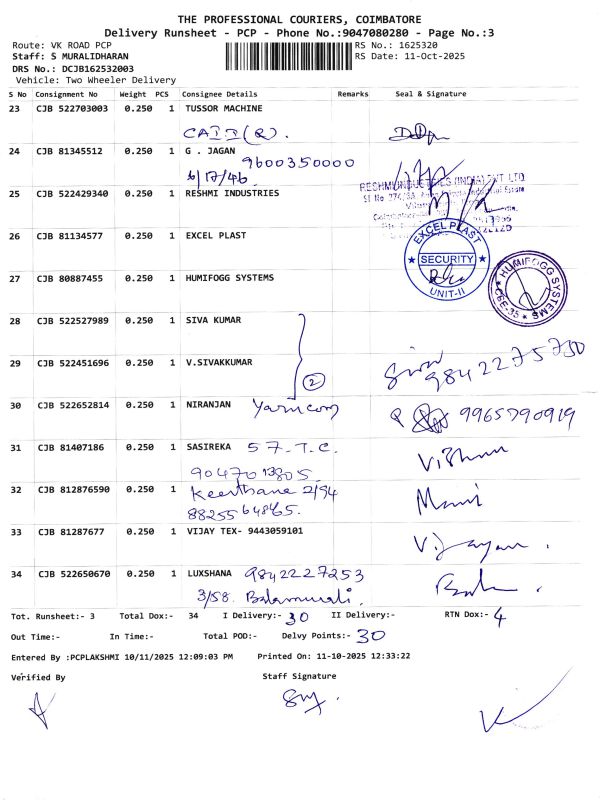 THE PROFESSIONAL COURIERS, COIMBATORE
Delivery Runsheet - PCP - Phone No.:9047080280 - Page No.:3
Route: VK ROAD PCP RS No.: 1625320
Staff: S MURALIDHARAN RS Date: 11-Oct-2025
DRS No.: DCJB162532003
Vehicle: Two Wheeler Delivery
S No Consignment No Weight PCS Consignee Details Remarks Seal & Signature
23 CJB 522703003 0.250 1 TUSSOR MACHINE
24 CJB 81345512 0.250 1 G . JAGAN
9600350000
6/17/46
25 CJB 522429340 0.250 1 RESHMI INDUSTRIES
RESHMI INDUSTRIES (INDIA) PVT LTD
26 CJB 81134577 0.250 1 EXCEL PLAST
EXCEL PLAST
SECURITY
UNIT-II
27 CJB 80887455 1 0.250 HUMIFOGG SYSTEMS
HUMIFOGG SYSTEMS
CBE-35
28 CJB 522527989 0.250 1 SIVA KUMAR
29 CJB 522451696 0.250 1 V.SIVAKKUMAR
2
Siva
9842275730
30 CJB 522652814 0.250 1 NIRANJAN Yarncom 9965790919
31 CJB 81407186 0.250 1 SASIREKA 57-T.C.
32 CJB 812876590 0.250 1 Keerthane 2/94
Mani
33 CJB 81287677 0.250 1 VIJAY TEX- 9443059101
Vijayan.
34 CJB 522650670 0.250 1 LUXSHANA 9842227253
3/58. Balamurali.
Tot. Runsheet:- 3 Total Dox:- 34 I Delivery:- 30 II Delivery:- RTN Dox:- 4
Out Time:- In Time:- Total POD:- Delvy Points:- 30
Entered By :PCPLAKSHMI 10/11/2025 12:09:03 PM Printed On: 11-10-2025 12:33:22
Verified By Staff Signature